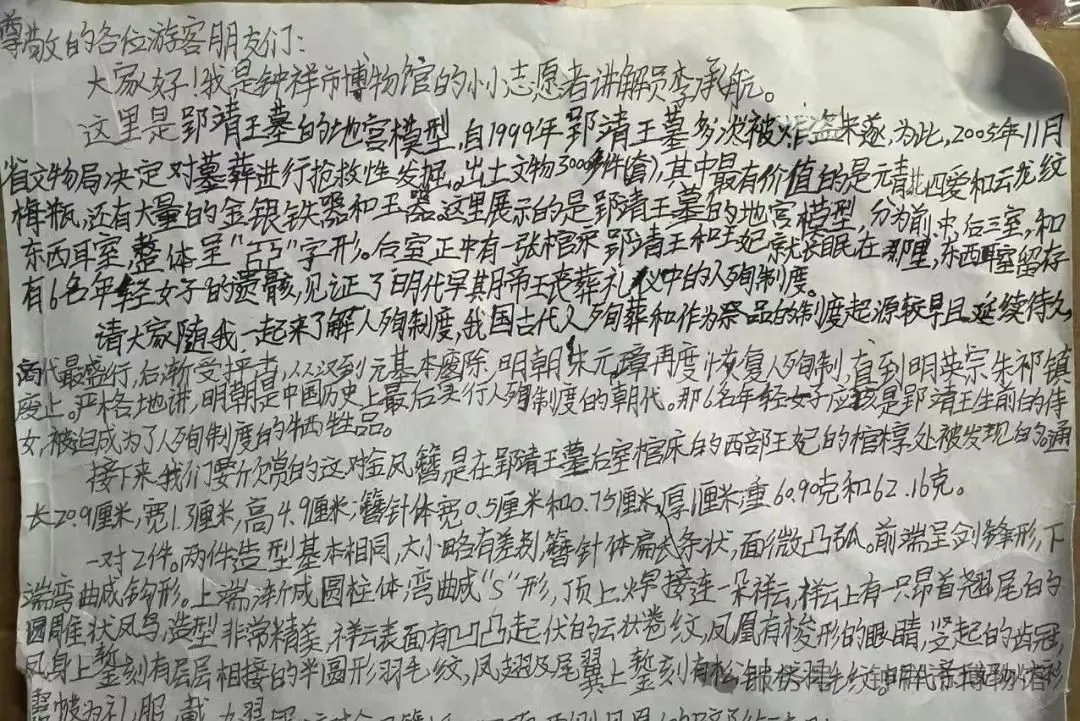 尊敬的各位游客朋友们:
大家好!我是钟祥市博物馆的小小志愿者讲解员李承航。
这里是郢靖王墓的地宫模型,自1999年郢靖王墓多次被炸盗未遂,为此,2005年11月
省文物局决定对墓葬进行抢救性发掘。出土文物3000多件(套),其中最有价值的是元青花四爱和云龙纹
梅瓶,还有大量的金银铁器和玉器。这里展示的是郢靖王墓的地宫模型,分为前,中,后三室,和
东西耳室,整体呈"吕"字形。后室正中有一张棺床郢靖王和王妃就长眠在那里,东西耳室留存
有6名年轻女子的遗骸,见证了明代早期帝王丧葬礼仪中的人殉制度。
请大家随我一起来了解人殉制度,我国古代人殉葬和作为祭品的制度起源较早且延续持久,
商代最盛行,后渐受抨击,从汉到元基本废除,明朝朱元璋再度恢复人殉制,直到明英宗朱祁镇
废止。严格地讲,明朝是中国历史上最后实行人殉制度的朝代。那6名年轻女子应该是郢靖王生前的侍
女,被迫成为了人殉制度的牺牲品。
接下来我们要欣赏的这对金凤簪是在郢靖王墓后室棺床的西部王妃的棺椁处被发现的。通
长20.9厘米,宽1.3厘米,高4.9厘米;簪针体宽0.5厘米和0.75厘米,厚1厘米;重60.90克和62.16克。
一对2件。两件造型基本相同,大小略有差别,簪针体扁长条状,面微凸弧。前端呈剑锋形,下
端弯曲成钩形。上端渐成圆柱体,弯曲成"S"形,顶上焊接连一朵祥云,祥云上有一只昂首翘尾的
圆雕状凤鸟,造型非常精美,祥云表面有凹凸起伏的云状卷纹,凤凰有梭形的眼睛,竖起的齿冠,
凤身上錾刻有层层相接的半圆形羽毛纹,凤翅及尾翼上錾刻有松针状羽毛纹。明代
为礼服